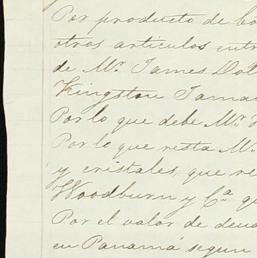 Por producto de
otros articulos
de Mr. James
Kingston
Por lo que debe Mr.
Por lo que resta
y cristales, que
Woodburn y Ca.
Por el valor de
en Panamá segun